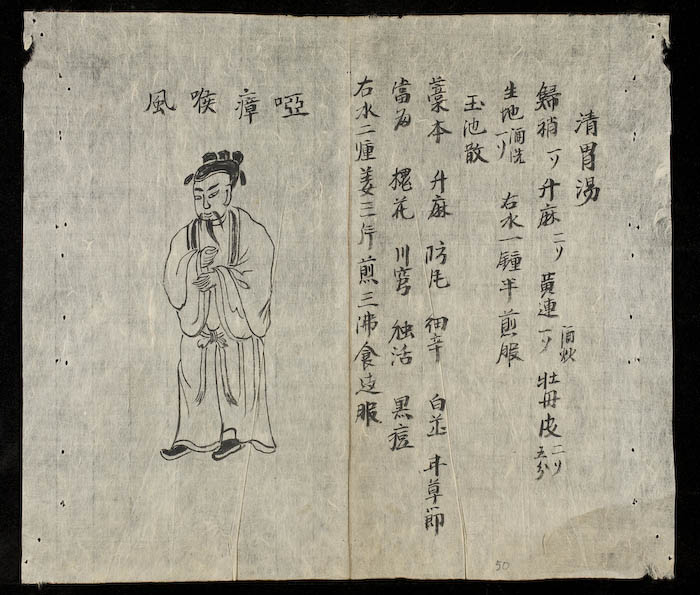 清胃湯
歸梢一ソ 升麻二ソ 黃連一ソ酒炒 牡丹皮二ソ五分
生地酒洗一ソ 右水一鍾半煎服
玉池散
藁本 升麻 防风 細辛 白芷 甘草節
當归 槐花 川穹 独活 黒痘
右水二鍾姜三斤煎三沸食遠服
啞瘴喉風
50